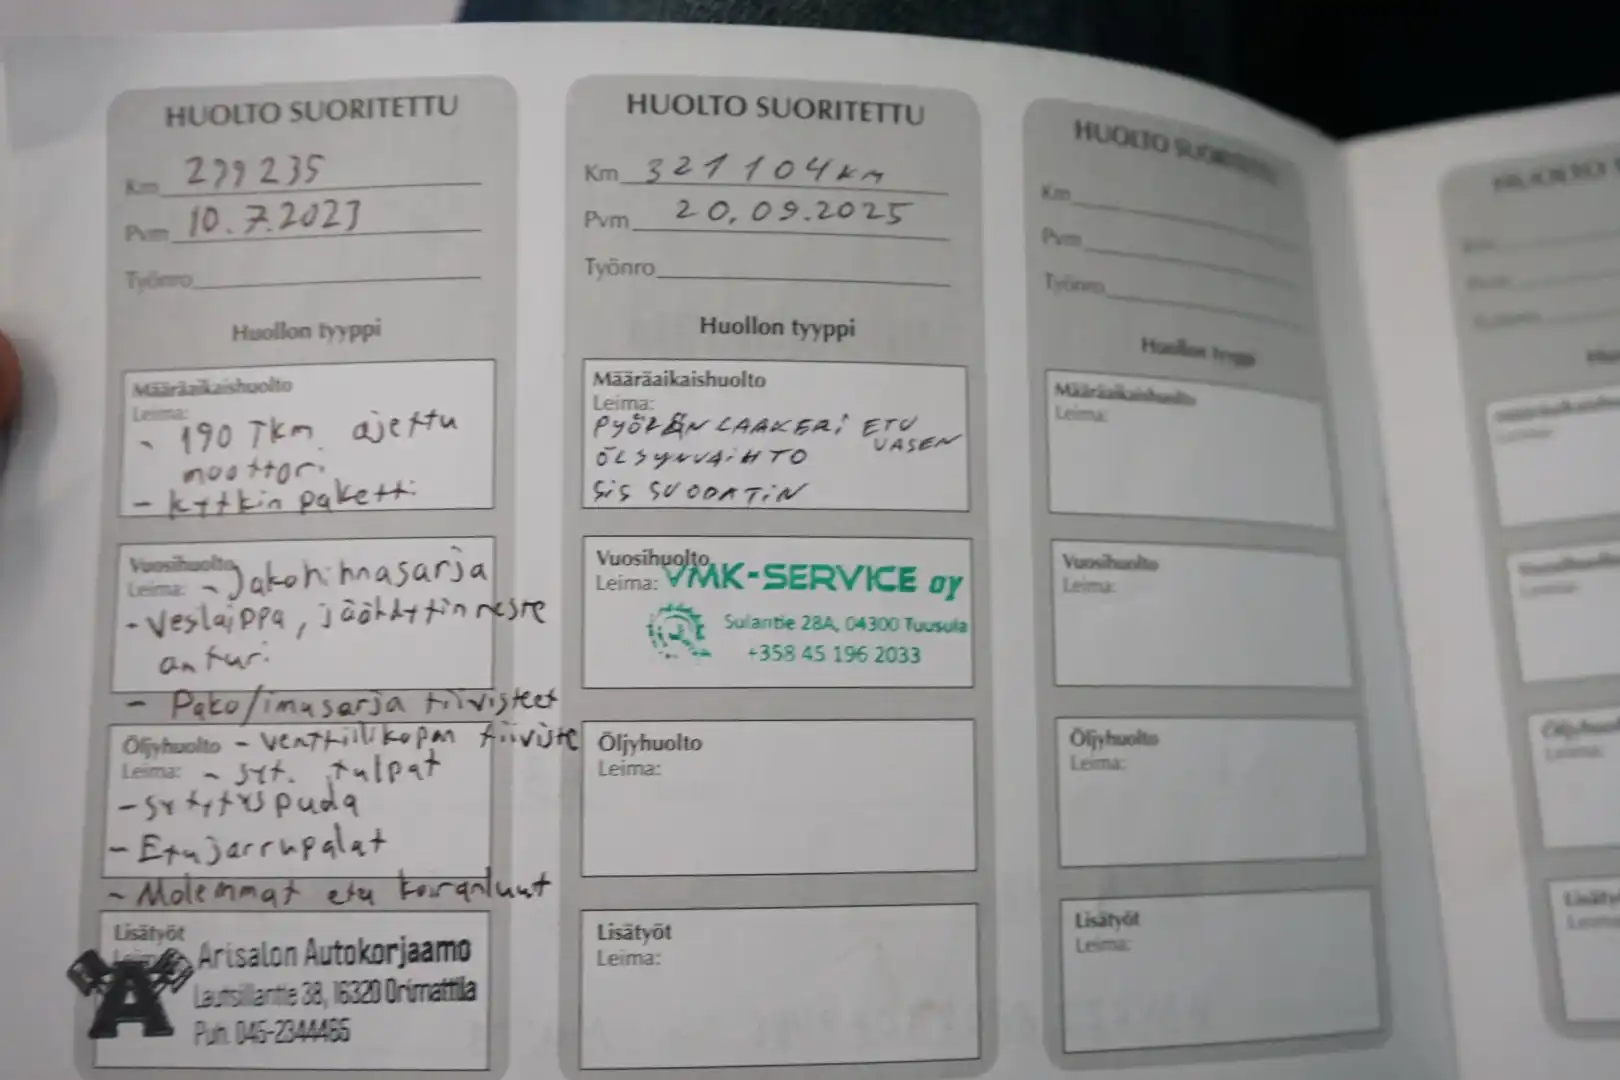 HUOLTO SUORITETTU
Km 279235
Pvm 10.7.2023
Työnro
Huollon tyyppi
Määräaikaishuolto
Leima:
- 190 Tkm ajettu
moottori
- kytkin paketti
Vuosihuolto
Leima: - Jakohihnasarja
- Vesilaippa, jäähdytinneste
anturi
- Pako/imusarja tiivisteet
Öljyhuolto - venttiilikopan tiiviste
Leima: - syt. tulpat
- sytytyspuola
- Etujarrupalat
- Molemmat etu koiranluut
Lisätyöt
Leima:
Arisalon Autokorjaamo
Lautsillantie 38, 16320 Orimattila
Puh. 045-2344465
HUOLTO SUORITETTU
Km 321 104 km
Pvm 20.09.2025
Työnro
Huollon tyyppi
Määräaikaishuolto
Leima:
PYÖRÄN LAAKERi ETU
VASEN
ÖLJYNVAiHTO
SiS SUODATiN
Vuosihuolto
Leima: VMK-SERVICE oy
Sulantie 28A, 04300 Tuusula
+358 45 196 2033
Öljyhuolto
Leima:
Lisätyöt
Leima:
HUOLTO SUORITETTU
Km
Pvm
Työnro
Huollon tyyppi
Määräaikaishuolto
Leima:
Vuosihuolto
Leima:
Öljyhuolto
Leima:
Lisätyöt
Leima: